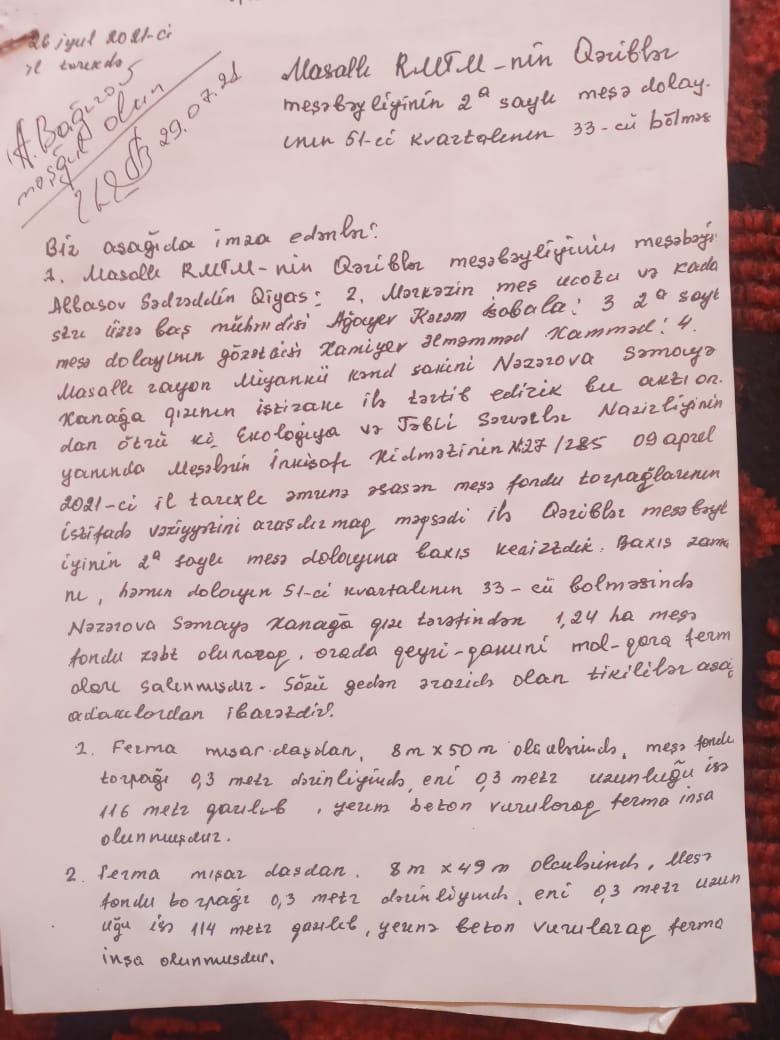 26 iyul 2021-ci
il tarixdə
A. Bağırov
məşğul olun
29.07.21
Masallı RMTM-nin Qəriblər
meşəbəyliyinin 2ª saylı meşə dolay.
ının 51-ci kvartalının 33-cü bölməs
Biz aşağıda imza edənlər:
1. Masallı RMTM-nin Qəriblər meşəbəyliyinin meşəbəyi
Abbasov Sədrəddin Qiyas: 2. Mərkəzin meş ucotu və kada
stru üzrə baş mühəndisi Ağayev Kərəm İsabala: 3 2ª sayl
meşə dolayının gözətçisi Hamiyev Əlməmməd Hamməd: 4.
Masallı rayon Miyankü kənd sakini Nəzərova Səmayə
Xanağa qızının iştirakı ilə tərtib edirik bu aktı on.
dan ötrü ki, Ekologiya və Təbii Sərvətlər Nazirliyinin
yanında Meşələrin İnkişafı Xidmətinin №27/285 09 aprel
2021-ci il tarixli əmrinə əsasən meşə fondu torpağlarının
istifadə vəziyyətini araşdırmaq məqsədi ilə Qəriblər meşəbəyl
iyinin 2ª saylı meşə dolayına baxış keçirdik. Baxış zama
nı, həmin dolayın 51-ci kvartalının 33-cü bölməsində
Nəzərova Səmayə Xanağa qızı tərəfindən 1,24 ha meşə
fondu zəbt olunaraq, orada qeyri-qanuni mal-qara ferm
aları salınmışdır. Sözü gedən ərazidə olan tikililər aşağ
adakılardan ibarətdir:
1. Ferma mişar daşdan, 8m x 50m ölçülsündə, meşə fondu
torpağı 0,3 metr dərinliyində, eni 0,3 metr uzunluğu isə
116 metr qazılıb, yerinə beton vurularaq ferma inşa
olunmuşdur.
2. Ferma mişar daşdan. 8m x 49m ölçülsündə, Meşə
fondu torpağı 0,3 metr dərinliyində, eni 0,3 metr uzun
uğu isə 114 metr qazılıb, yerinə beton vurularaq ferma
inşa olunmuşdur.